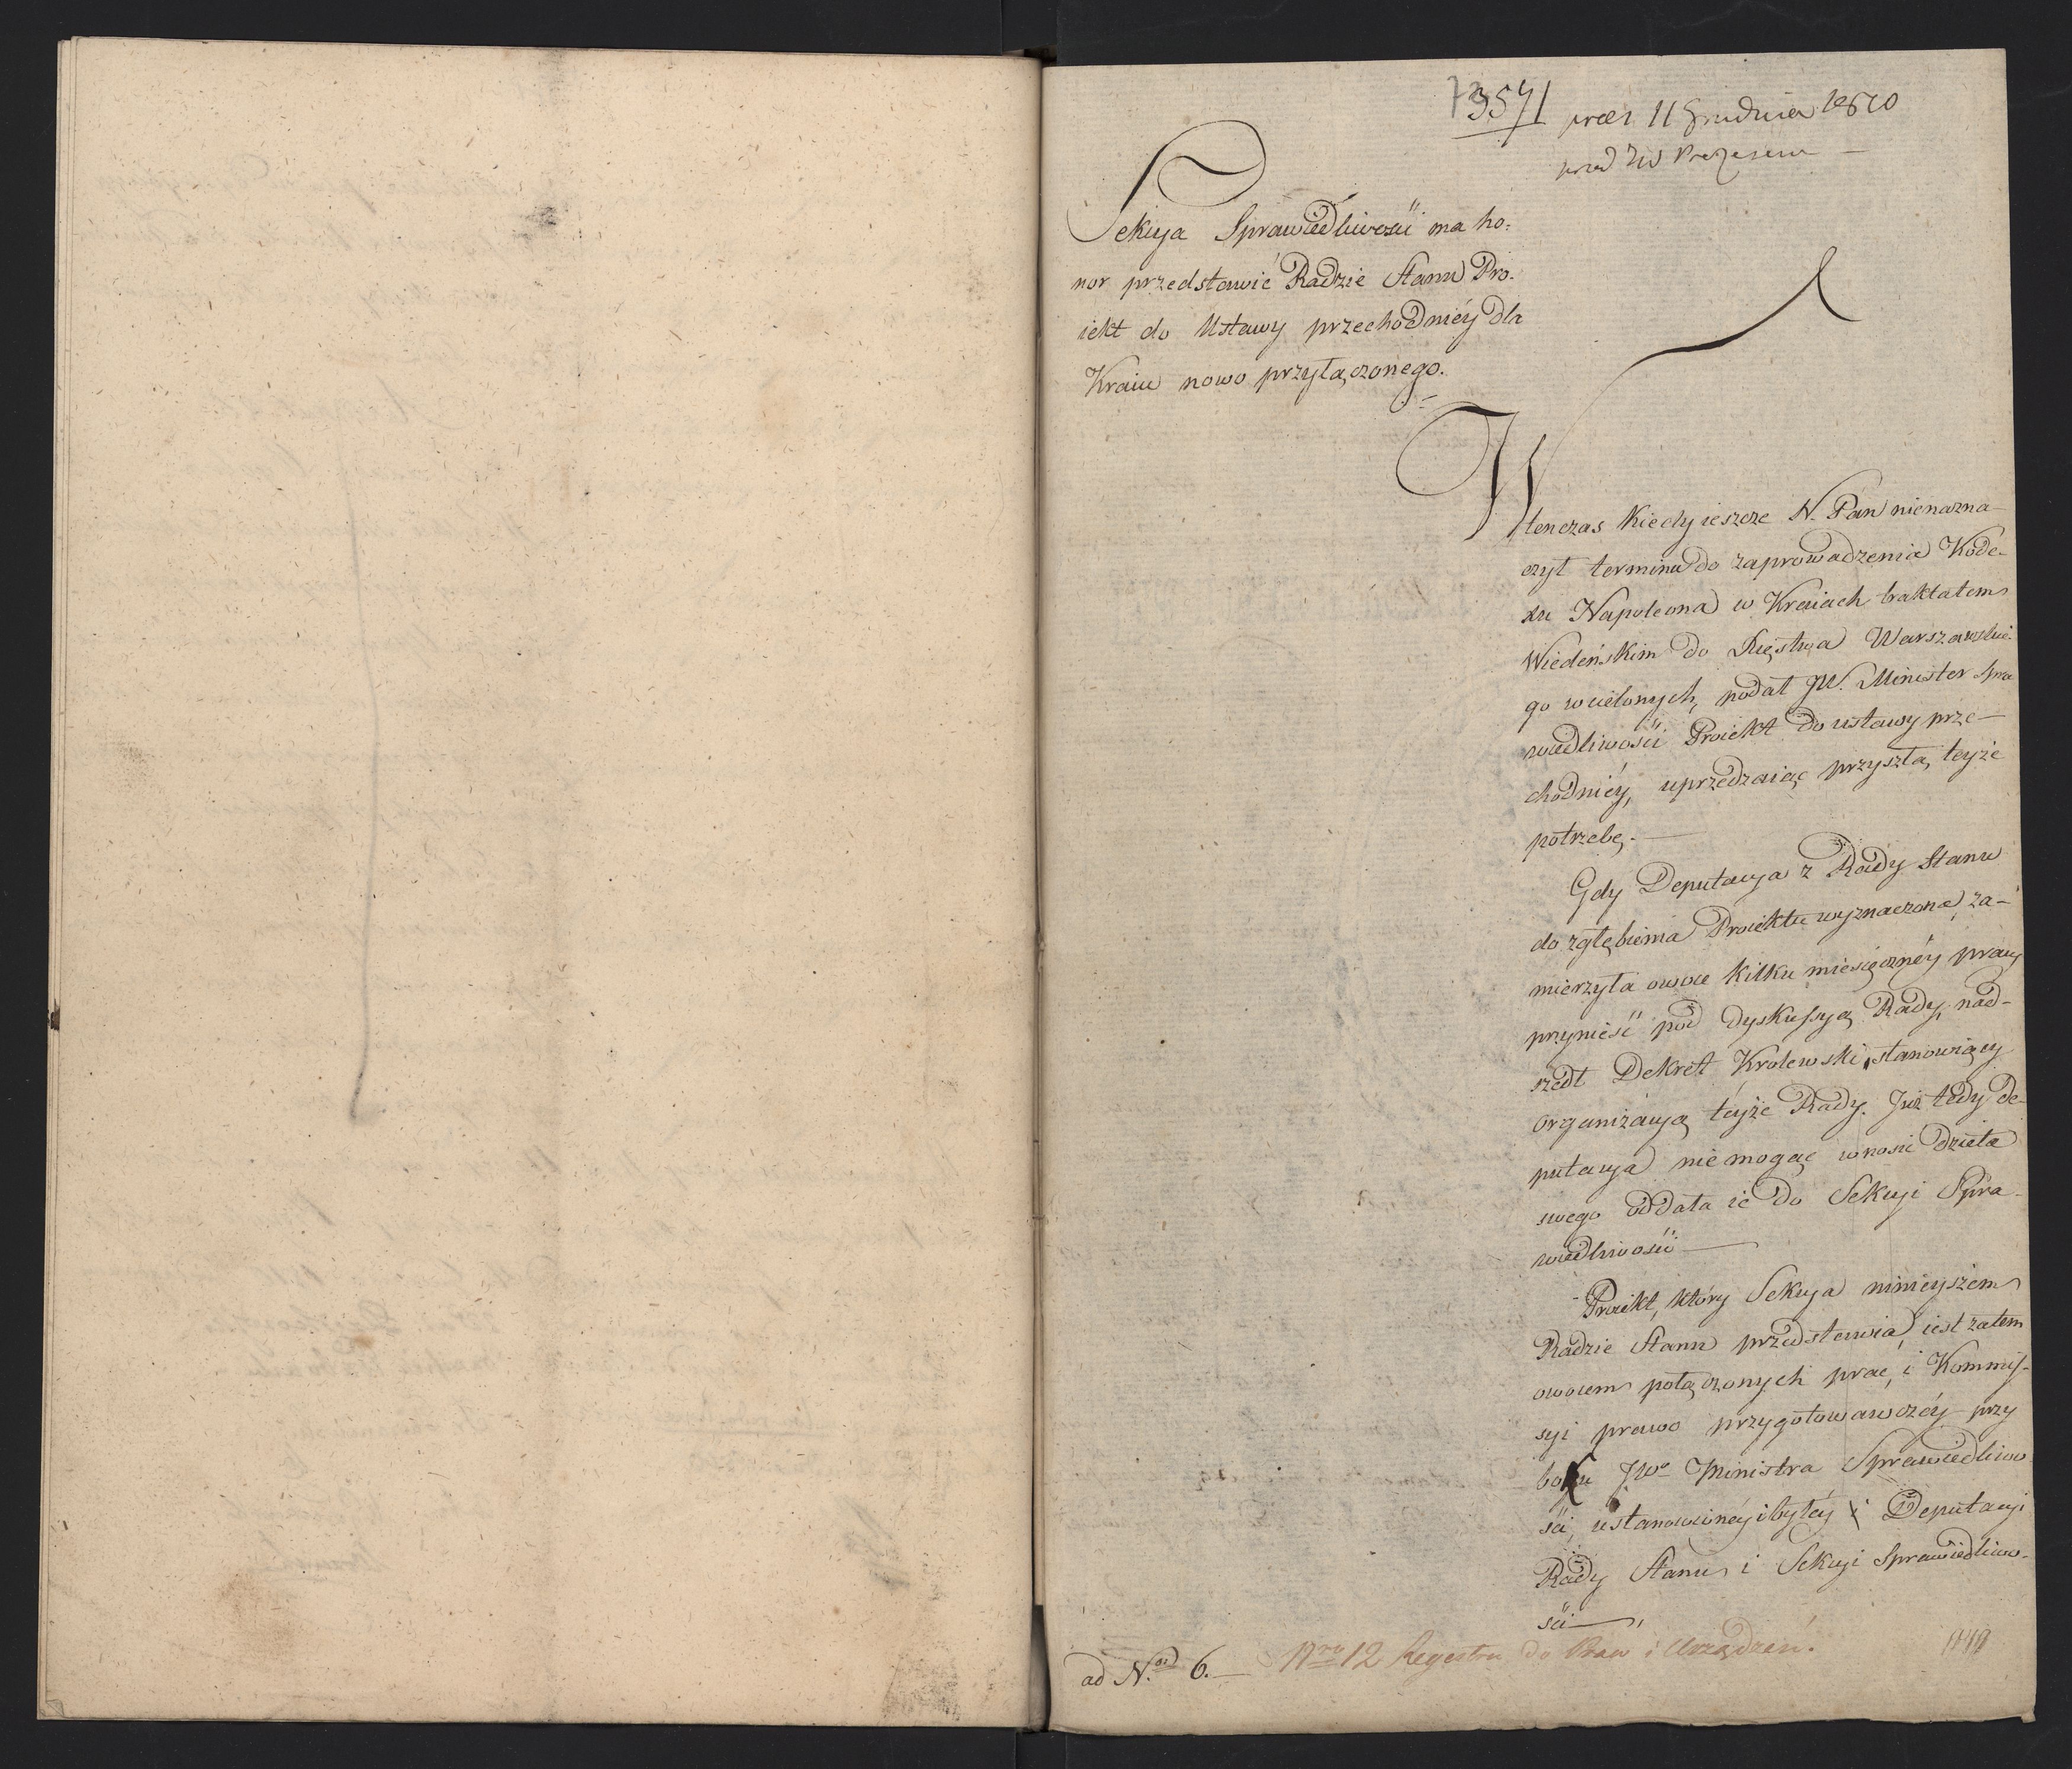 3571
prees 11 Grudnia 1810
przed JW Prezesem —
Sekcya Sprawiedliwości ma ho:
nor przedstawić Radzie Stanu Pro:
iekt do Ustawy przechodniéy dla
Kraiu nowo przyłączonego.
Wtenczas kiedy ieszcze N. Pan nienazna-
czył terminu do zaprowadzenia Kode-
xu Napoleona w Kraiach traktatem
Wiedeńskim do Xięstwa Warszawskie-
go wcielonych, podał JW. Minister Spra
wiedliwości Proiekt do ustawy prze-
chodniéy, uprzedzaiąc przyszłą teyże
potrzebę. —
Gdy Deputacya z Rady Stanu
do zgłębienia Proiektu wyznaczona, za-
mierzyła owoce kilku miesięcznéy pracy
przynieść pod dyskussyą Rady, nad-
szedł Dekret Królewski stanowiący
organizacyą téyże Rady. Już tedy De-
putacya nie mogąc wnosić dzieła
swego oddała ie do Sekcyi Spra-
wiedliwości —
Proiekt, który Sekcya ninieyszem
Radzie Stanu przedstawia, iest zatem
owocem połączonych prac, i Kommis-
syi prawo przygotowawczéy przy
boku JWo Ministra Sprawiedliwo
ści, ustanowionéy i byłéy i Deputacyi
Rady Stanu i Sekcyi Sprawiedliwo-
ści —
ad N.um 6. — Nro 12 Regestru do Praw i Urządzeń.